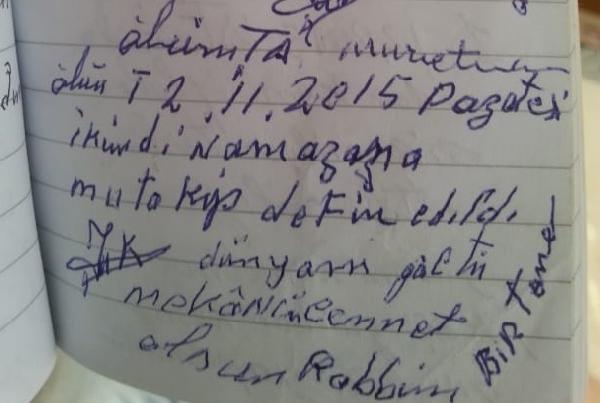 ölüm TA
ölüm T 2.11.2015 Pazatesi
ikindi Namazana
mutakip defin edildi
dünyam göçtü
mekânı cennet
olsun Rabbim
BiR tane